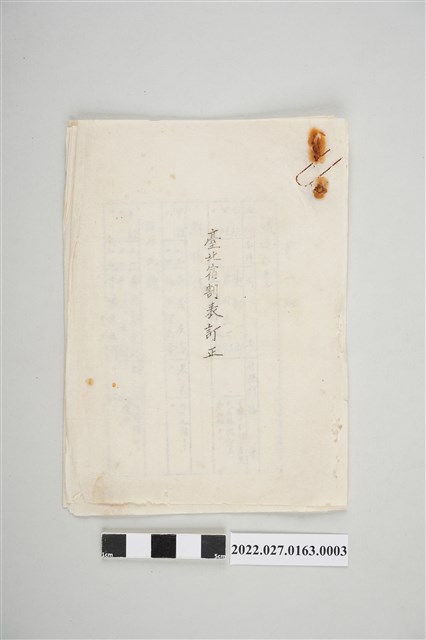 臺北省制表訂正
1cm
5cm
2022.027.0163.0003